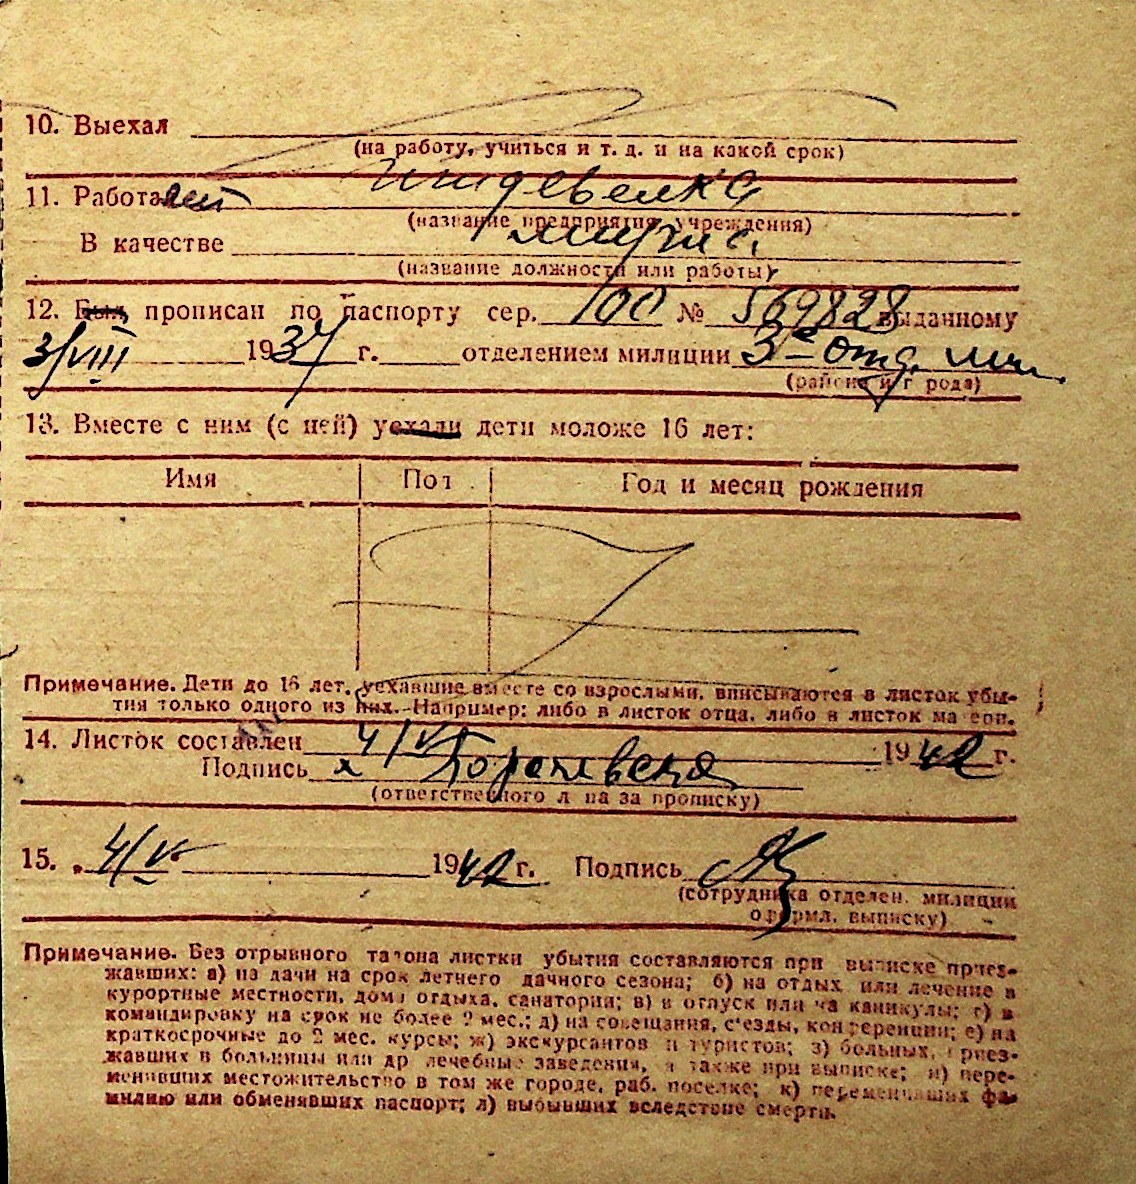 10. Выехал
(на работу, учиться и т. д. и на какой срок)
11. Работает иждевенка
(название предприятия, учреждения)
В качестве
(название должности или работы)
12. Был прописан по паспорту сер. № 569828 выданному
3/VIII 1937 г. отделением милиции 3е отд. мил.
(района и города)
13. Вместе с ним (с ней) уехали дети моложе 16 лет:
Имя Пол Год и месяц рождения
Примечание. Дети до 16 лет, уехавшие вместе со взрослыми, вписываются в листок убы-
тия только одного из них. Например: либо в листок отца, либо в листок матери.
14. Листок составлен 4/V 1942 г.
Подпись
(ответственного лица за прописку)
15. 4/V 1942 г. Подпись
(сотрудника отделен. милиции
оформл. выписку)
Примечание. Без отрывного талона листки убытия составляются при выписке приез-
жавших: а) на дачи на срок летнего дачного сезона; б) на отдых или лечение в
курортные местности, дома отдыха, санатории; в) в отпуск или на каникулы; г) в
командировку на срок не более 2 мес.; д) на совещания, съезды, конференции; е) на
краткосрочные до 2 мес. курсы; ж) экскурсантов и туристов; з) больных, приез-
жавших в больницы или др лечебные заведения, а также при выписке; и) пере-
менивших местожительство в том же городе, раб. поселке; к) переменивших фа-
милию или обменявших паспорт; л) выбывших вследствие смерти.